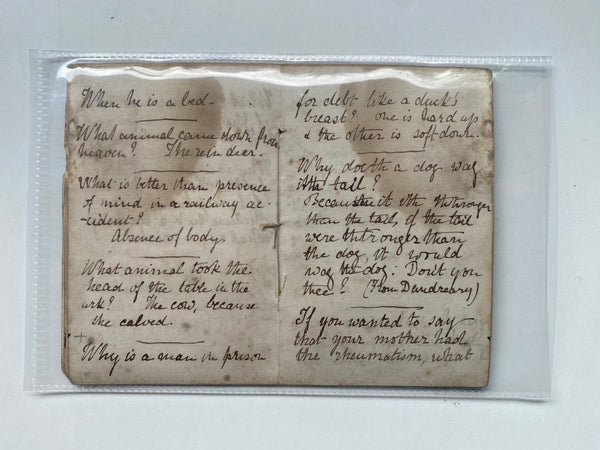 When he is a bed-
What animal came down from
heaven? The rein deer.
What is better than presence
of mind in a railway ac-
cident?
Absence of body.
What animal took the
head of the table in the
ark? The cow, because
she calved.
Why is a man in prison
for debt like a duck's
breast? one is hard up
& the other is soft down.
Why doth a dog wag
ith tail?
Because it ith thtronger
than the tail, if the tail
were thtronger than
the dog, it would
wag the dog: Don't you
thee? (From Dundreary)
If you wanted to say
that your mother had
the rheumatism, what